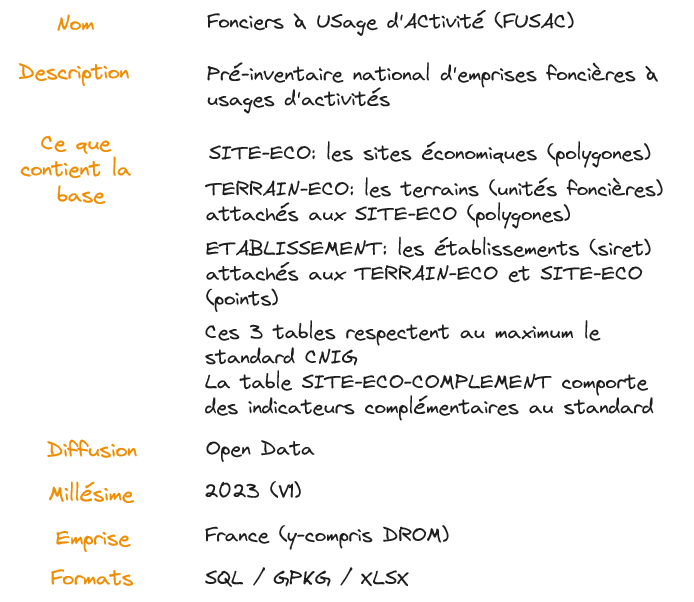 Nom
Fonciers à USage d'ACtivité (FUSAC)
Description
Pré-inventaire national d'emprises foncières à
usages d'activités
Ce que
contient la
base
SITE-ECO: les sites économiques (polygones)
TERRAIN-ECO: les terrains (unités foncières)
attachés aux SITE-ECO (polygones)
ETABLISSEMENT: les établissements (siret)
attachés aux TERRAIN-ECO et SITE-ECO
(points)
Ces 3 tables respectent au maximum le
standard CNIG,
La table SITE-ECO-COMPLEMENT comporte
des indicateurs complémentaires au standard
Diffusion
Open Data
Millésime
2023 (V1)
Emprise
France (y-compris DROM)
Formats
SQL / GPKG / XLSX